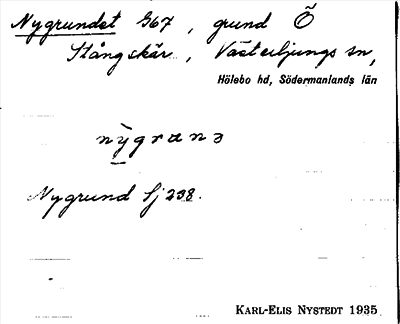 Nygrundet G67, grund Ö
Stångskär, Västerljungs sn,
Hölebo hd, Södermanlands län
nỳgrana
Nygrund Sj 238.
KARL-ELIS NYSTEDT 1935